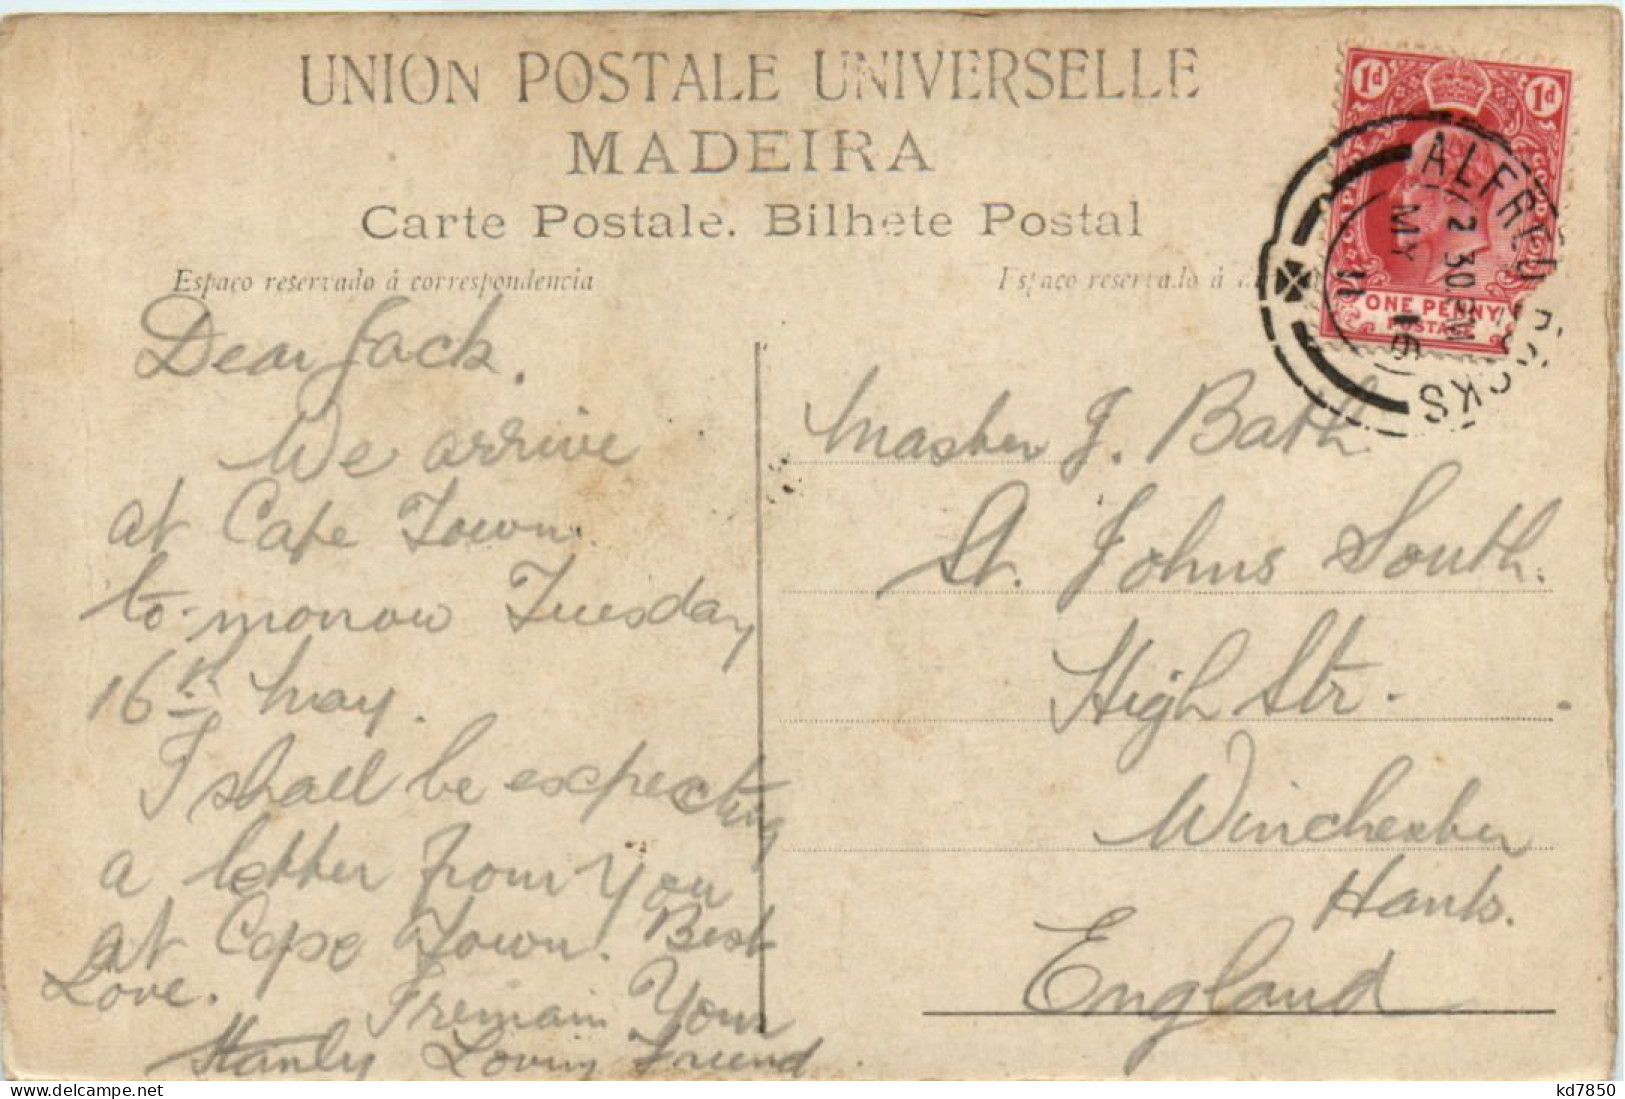 UNION POSTALE UNIVERSELLE
MADEIRA
Carte Postale. Bilhete Postal
Espaco reservado á correspondencia
Espaco reservado á
1d 1d
ONE PENNY
POSTAGE
ALFRED DOCKS
2 30 PM
MY 16
11
Dear Jack.
We arrive
at Cape Town.
to-morrow Tuesday
16th May.
I shall be expecting
a letter from You
at Cape Town. Best
Love.
I remain Your
Stanly Loving Friend
Master J. Bath.
St. Johns South.
High Str.
Winchester
Hants.
England
kd7850